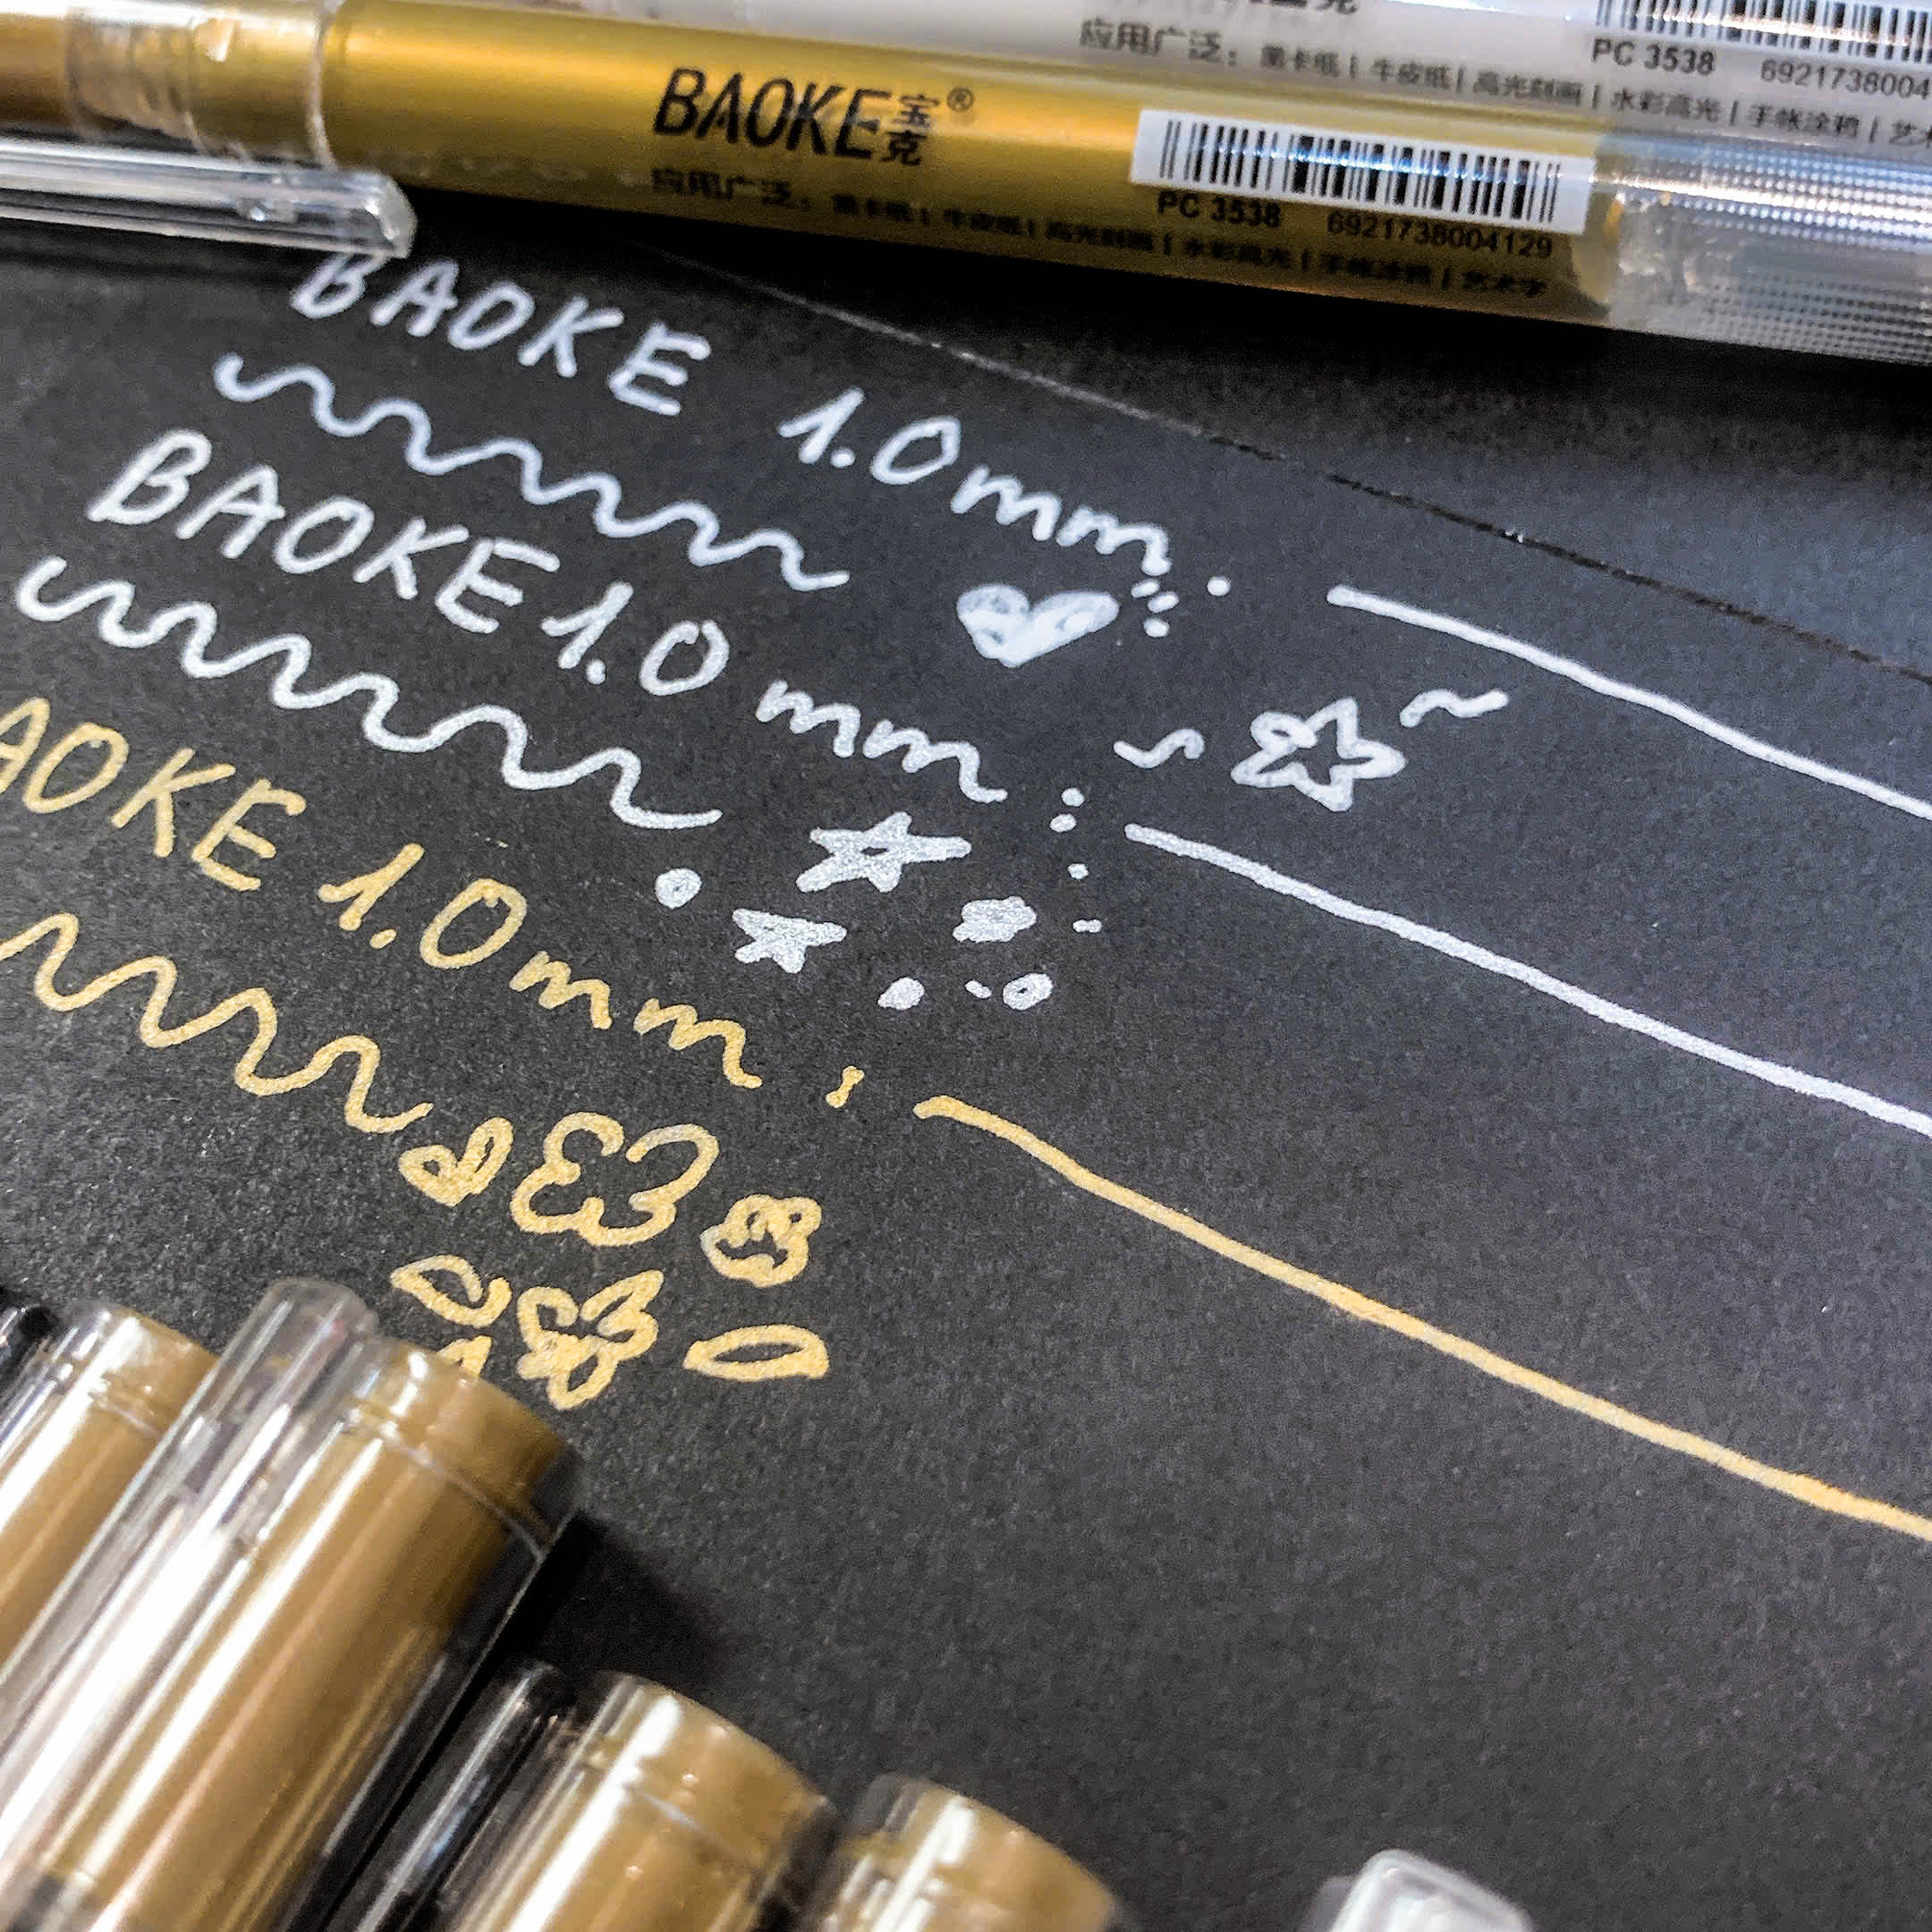 应用广泛：黑卡纸 | 牛皮纸 | 高光刻画 | 水彩高光 | 手帐涂鸦 |
PC 3538 6921738004
BAOKE宝克®
应用广泛：黑卡纸 | 牛皮纸 | 高光刻画 | 水彩高光 | 手帐涂鸦 | 艺术字
PC 3538 6921738004129
BAOKE 1.0mm
BAOKE 1.0 mm
AOKE 1.0mm